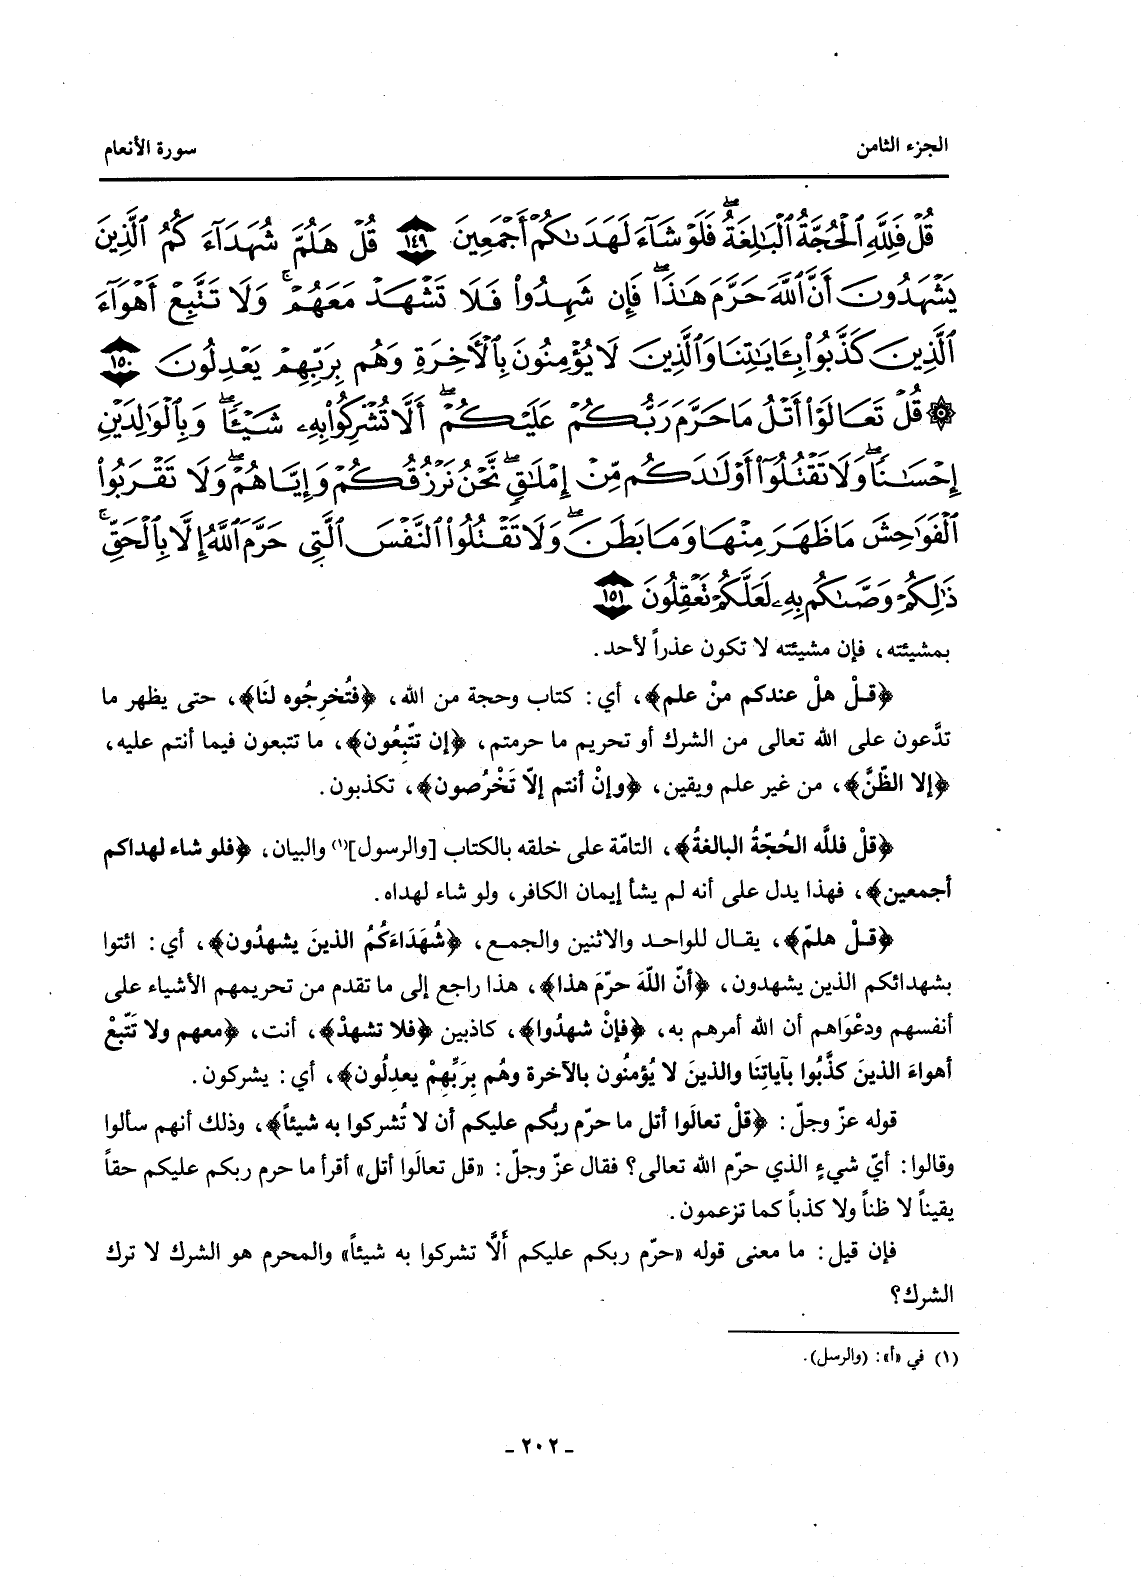 الجزء الثامن
سورة الأنعام
قُلْ فَلِلَّهِ ٱلْحُجَّةُ ٱلْبَٰلِغَةُ ۖ فَلَوْ شَآءَ لَهَدَىٰكُمْ أَجْمَعِينَ ١٤٩ قُلْ هَلُمَّ شُهَدَآءَكُمُ ٱلَّذِينَ
يَشْهَدُونَ أَنَّ ٱللَّهَ حَرَّمَ هَٰذَا ۖ فَإِن شَهِدُوا۟ فَلَا تَشْهَدْ مَعَهُمْ ۚ وَلَا تَتَّبِعْ أَهْوَآءَ
ٱلَّذِينَ كَذَّبُوا۟ بِـَٔايَٰتِنَا وَٱلَّذِينَ لَا يُؤْمِنُونَ بِٱلْـَٔاخِرَةِ وَهُم بِرَبِّهِمْ يَعْدِلُونَ ١٥٠
۞ قُلْ تَعَالَوْا۟ أَتْلُ مَا حَرَّمَ رَبُّكُمْ عَلَيْكُمْ ۖ أَلَّا تُشْرِكُوا۟ بِهِۦ شَيْـًٔا ۖ وَبِٱلْوَٰلِدَيْنِ
إِحْسَٰنًا ۖ وَلَا تَقْتُلُوٓا۟ أَوْلَٰدَكُم مِّنْ إِمْلَٰقٍ ۖ نَّحْنُ نَرْزُقُكُمْ وَإِيَّاهُمْ ۖ وَلَا تَقْرَبُوا۟
ٱلْفَوَٰحِشَ مَا ظَهَرَ مِنْهَا وَمَا بَطَنَ ۖ وَلَا تَقْتُلُوا۟ ٱلنَّفْسَ ٱلَّتِى حَرَّمَ ٱللَّهُ إِلَّا بِٱلْحَقِّ ۚ
ذَٰلِكُمْ وَصَّىٰكُم بِهِۦ لَعَلَّكُمْ تَعْقِلُونَ ١٥١
بمشيئته، فإن مشيئته لا تكون عذراً لأحد.
﴿قـلْ هلْ عندكم منْ علم﴾، أي: كتاب وحجة من الله، ﴿فتُخرِجُوه لنَا﴾، حتى يظهر ما
تدَّعون على الله تعالى من الشرك أو تحريم ما حرمتم، ﴿إن تتّبِعُون﴾، ما تتبعون فيما أنتم عليه،
﴿إلا الظّنَّ﴾، من غير علم ويقين، ﴿وإنْ أنتم إلاّ تَخْرُصون﴾، تكذبون.
﴿قلْ فللَّه الحُجّةُ البالغةُ﴾، التامّة على خلقه بالكتاب [والرسول](١) والبيان، ﴿فلو شاء لهداكم
أجمعين﴾، فهذا يدل على أنه لم يشأ إيمان الكافر، ولو شاء لهداه.
﴿قـلْ هلمّ﴾، يقـال للواحد والاثنين والجمع، ﴿شُهَدَاءَكُمُ الذينَ يشهدُون﴾، أي: ائتوا
بشهدائكم الذين يشهدون، ﴿أنّ اللّهَ حرّمَ هذا﴾، هذا راجع إلى ما تقدم من تحريمهم الأشياء على
أنفسهم ودعْوَاهم أن الله أمرهم به، ﴿فإنْ شهدُوا﴾، كاذبين ﴿فلا تشهدْ﴾، أنت، ﴿معهم ولا تَتّبعْ
أهواءَ الذينَ كذَّبُوا بآياتِنَا والذينَ لا يُؤمنُون بالآخرة وهُم بِرَبِّهِمْ يعدِلُون﴾، أي: يشركون.
قوله عزّ وجلّ: ﴿قلْ تعالَوا أتل ما حرّم ربُّكم عليكم أن لا تُشركوا به شيئاً﴾، وذلك أنهم سألوا
وقالوا: أيّ شيءٍ الذي حرّم الله تعالى؟ فقال عزّ وجلّ: «قل تعالَوا أتل» أقرأ ما حرم ربكم عليكم حقاً
يقيناً لا ظناً ولا كذباً كما تزعمون.
فإن قيل: ما معنى قوله «حرّم ربكم عليكم أَلَّا تشركوا به شيئاً» والمحرم هو الشرك لا ترك
الشرك؟
(١) في «أ»: (والرسل).
- ٢٠٢ -